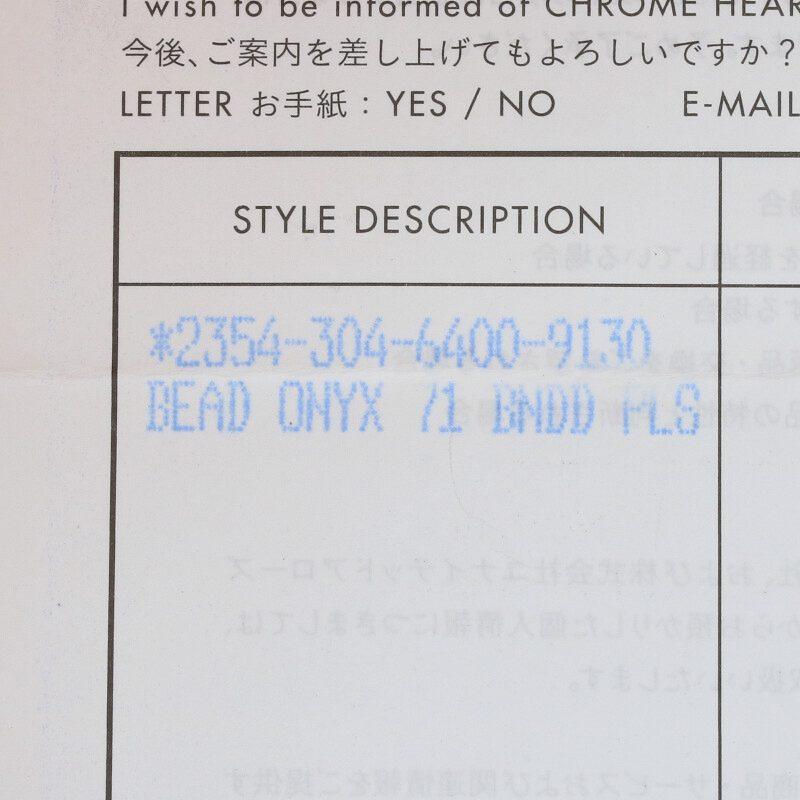 I wish to be informed of CHROME HEAR
今後、ご案内を差し上げてもよろしいですか？
LETTER お手紙： YES / NO E-MAIL
STYLE DESCRIPTION
*2354-304-6400-9130
BEAD ONYX /1 BNDD PLS